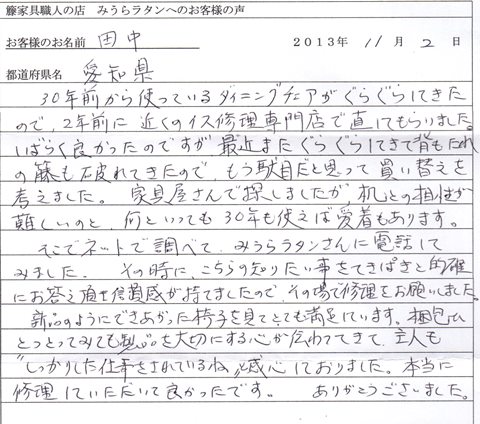 籐家具職人の店　みうらラタンへのお客様の声
お客様のお名前　田中　2013年 11 月 2 日
都道府県名　愛知県
30年前から使っているダイニングチェアがぐらぐらしてきた
ので、2年前に近くのイス修理専門店で直してもらいました。
しばらく良かったのですが最近またぐらぐらしてきて背もたれ
の籐も破れてきたので、もう駄目だと思って買い替えを
考えました。家具屋さんで探しましたが、机との相性が
難しいのと、何といっても30年も使えば愛着もあります。
そこでネットで調べて、みうらラタンさんに電話して
みました。その時に、こちらの知りたい事をてきぱきと的確
にお答え頂き信頼感が持てましたので、その場で修理をお願いしました。
新品のようにできあがった椅子を見てとても満足しています。梱包ひ
とつとってみても製品を大切にする心が伝わってきて、主人も
"しっかりした仕事をされているね"と感心しておりました。本当に
修理していただいて良かったです。　ありがとうございました。